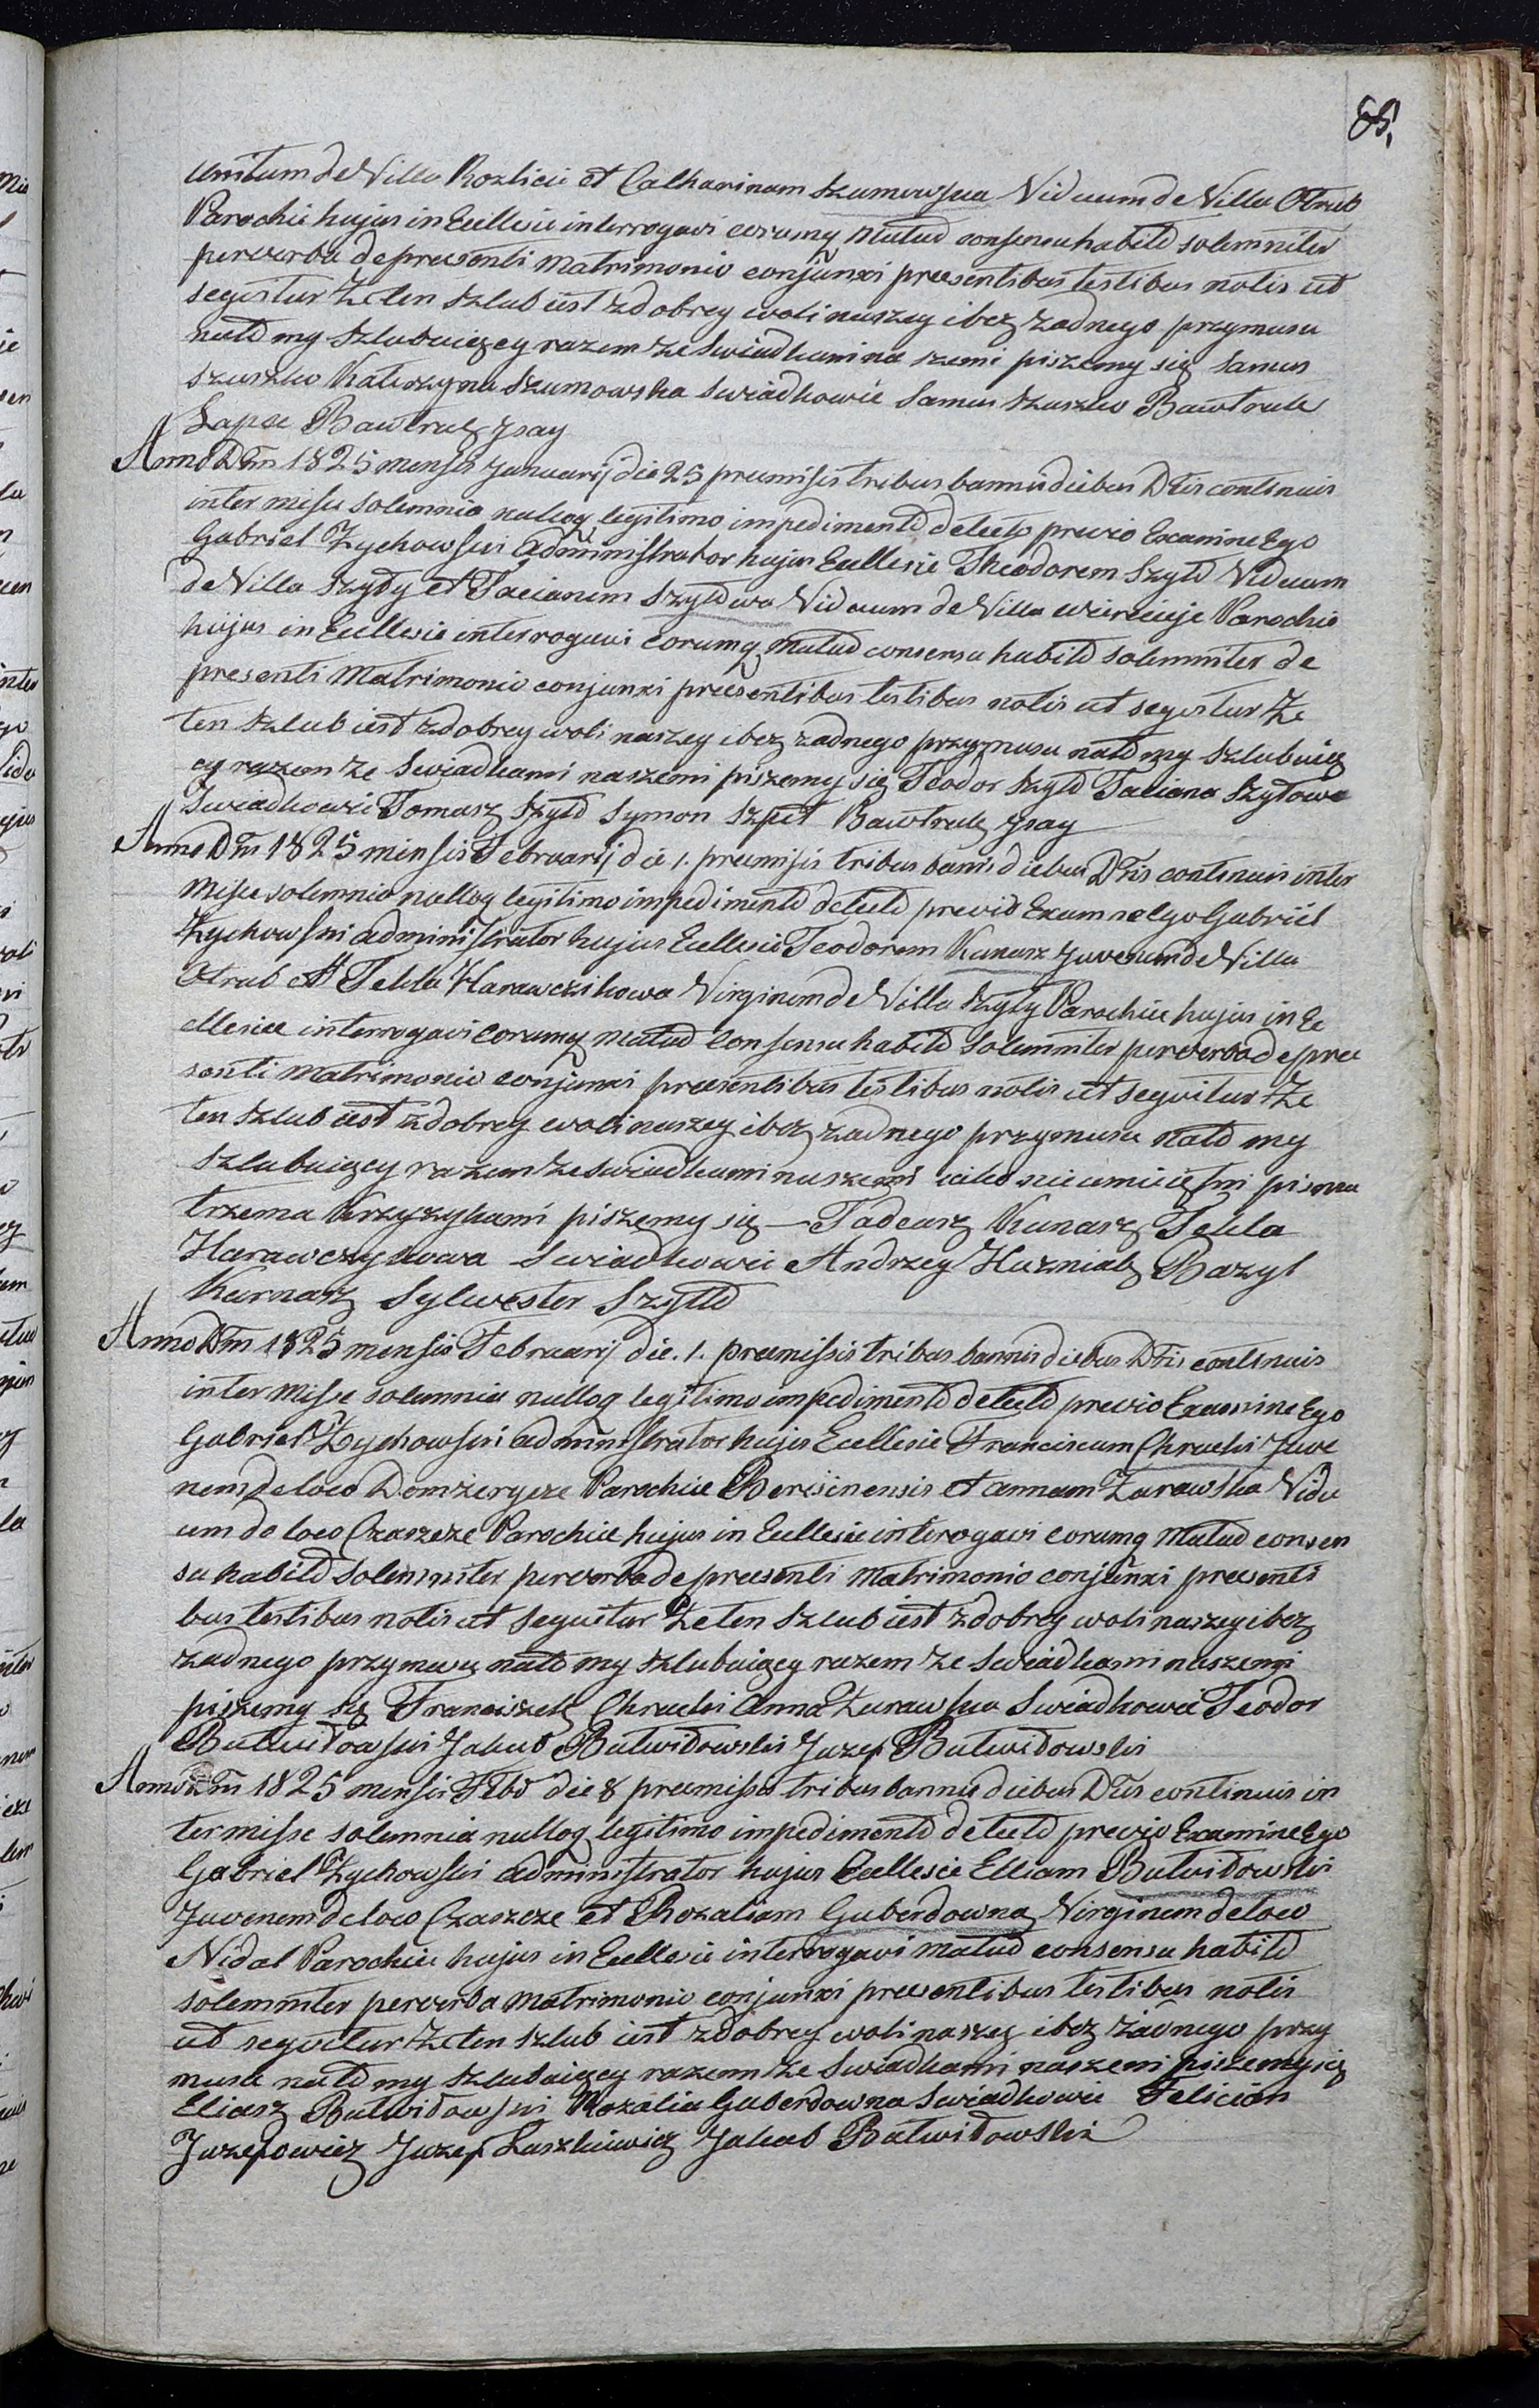 85.
unitum de Villa Rozlicie et Catharinam Szumowska Viduum de Villa Otrub
Parochie hujus in Ecclesie interrogavi eorumq mutuo consensu habito solemniter
per verba de presenti Matrimonio conjunxi presentibus testibus notis ut
segvitur Ze ten Szlub iest z dobrey woli naszey i bez zadnego przymusu
nato my Szlubuięcy razem ze Swiadkami na szemi piszemy się Samus
Szuszko Katrzyna Szumowska Swiadkowie Samus Szuszko Bawtruk
Łapec Bawtruk Jsay
Anno Dm̄ 1825 mensis Januarij die 25 premisis tribus bannis diebus D̄ris contenuis
inter misse Solemnia nulloq legitimo impedimento detecto previo Examine Ego
Gabriel Zychowski Administrator hujus Ecclesie Theodorem Szyło Viduum
de Villa Szyły et Tacianem Szyłowa Viduum de Villa Wierecieje Parochie
hujus in Ecclesie interrogavi eorumq mutuo consensu habito solemniter de
presenti Matrimonio conjunxi presentibus testibus notis ut segvitur Ze
ten Szlub iest z dobrey woli naszey i bez zadnego przymusu nato my Szlubuię
cy razem ze Swiadkami naszemi piszemy się Teodor Szyło Taciana Szyłowa
Swiadkowie Tomasz Szyło Symon Szpet Bawtruk Jsay
Anno Dm̄ 1825 mensis Februarij die 1. premisis tribus bannis diebus D̄ris contenuis inter
Misse solemnia nulloq legitimo impedimento detecto previo Examine Ego Gabriel
Zychowski administrator hujus Ecclesie Teodorem Kunasz Juvenem de Villa
Otrub et Tekla Harawczikowa Virginem de Villa Szyły Parochie hujus in Ec
clesiee interrogavi eorumq Mutuo Consensu habito solemniter per verba de pree
senti Matrimonio conjunxi preesentibus testibus notis ut segvitur Ze
ten Szlub iest z dobrey woli naszey i bez zadnego przymusu nato my
Szlubuięcy razem ze Swiadkami naszemi iako nieumieiętni pisma
trzema krzyzykami piszemy się — Tadeusz Kunasz Tekla
Harawczykowa Swiadkowie Andrzey Huzniak Bazyl
Kurnasz Sylwester Szyłło
Anno Dm̄ 1825 mensis Februarij die. 1. preemissis tribus bannis diebus D̄ris contenuis
inter Misse solemnia nulloq legitimo impedimento detecto previo Examine Ego
Gabriel Zychowski administrator hujus Ecclesie Franciscum Chrucki Juve
nem de loco Domzeryce Parochie Beresinensis et Annam Zurawska Vidu
um de loco Czaszcze Parochiee hujus in Ecclesie interogavi eorumq Mutuo consen
su habito solemniter per verba de preesenti Matrimonio conjunxi preesenti
bus testibus notis ut segvitur Ze ten Szlub iest z dobrey woli naszey i bez
zadnego przymusu nato my Szlubuięcy razem ze Swiadkami naszemi
piszemy się Franciszek Chrucki Anna Zurawska Swiadkowie Teodor
Butwiłowski Jakub Butwiłowski Juzef Butwiłowski
Anno Dm̄ 1825 mensis Feb̄ die 8 preemissis tribus bannis diebus D̄ris contenuis in
ter misse solemnia nulloq legitimo impedimento detecto previo Examine Ego
Gabriel Zychowski administrator hujus Ecclesie Elliam Butwiłowski
Juvenem de loco Czaszcze et Rozaliam Guberdowna Virginem de loco
Nidal Parochie hujus in Ecclesie interrogavi mutuo consensu habito
solemniter per verba Matrimonio conjunxi preesentibus testibus notis
ut segvitur Ze ten Szlub iest z dobrey woli naszey i bez zadnego przy
musu nato my Szlubuięcy razem ze Swiadkami naszemi piszemy się
Eliasz Butwiłowski Rozalia Guberdowna Swiadkowie Felician
Juzefowicz Juzef Laszkiewicz Jakub Butwiłowski